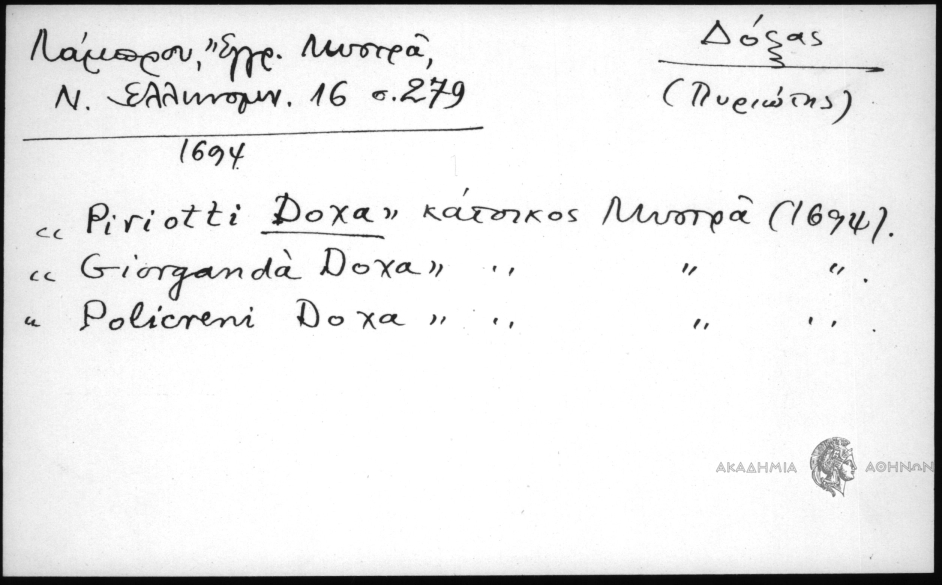 Λάμπρου, "Έγγρ. Μυστρᾶ,
Ν. Ἑλληνομν. 16 σ. 279
1694
Δόξας
(Πυριώτης)
“ Piriotti Doxa” κάτοικος Μυστρᾶ (1694).
“ Giorgandà Doxa” ,, ,, ,, .
“ Policreni Doxa” ,, ,, ,, .
ΑΚΑΔΗΜΙΑ ΑΘΗΝΩΝ